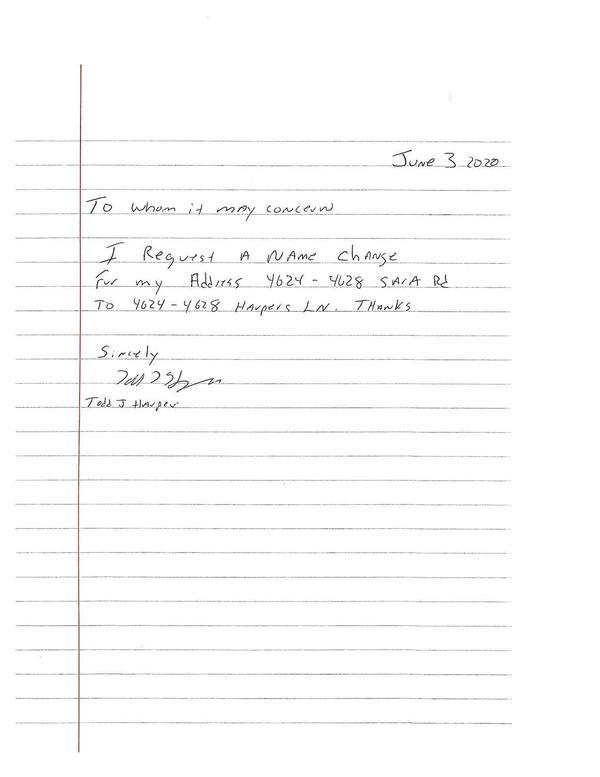 June 3 2020
To whom it may concern
I Request A Name Change
For my Address 4624-4628 SAIA Rd
To 4624-4628 Harpers LN. Thanks
Sincely
Todd J Harper